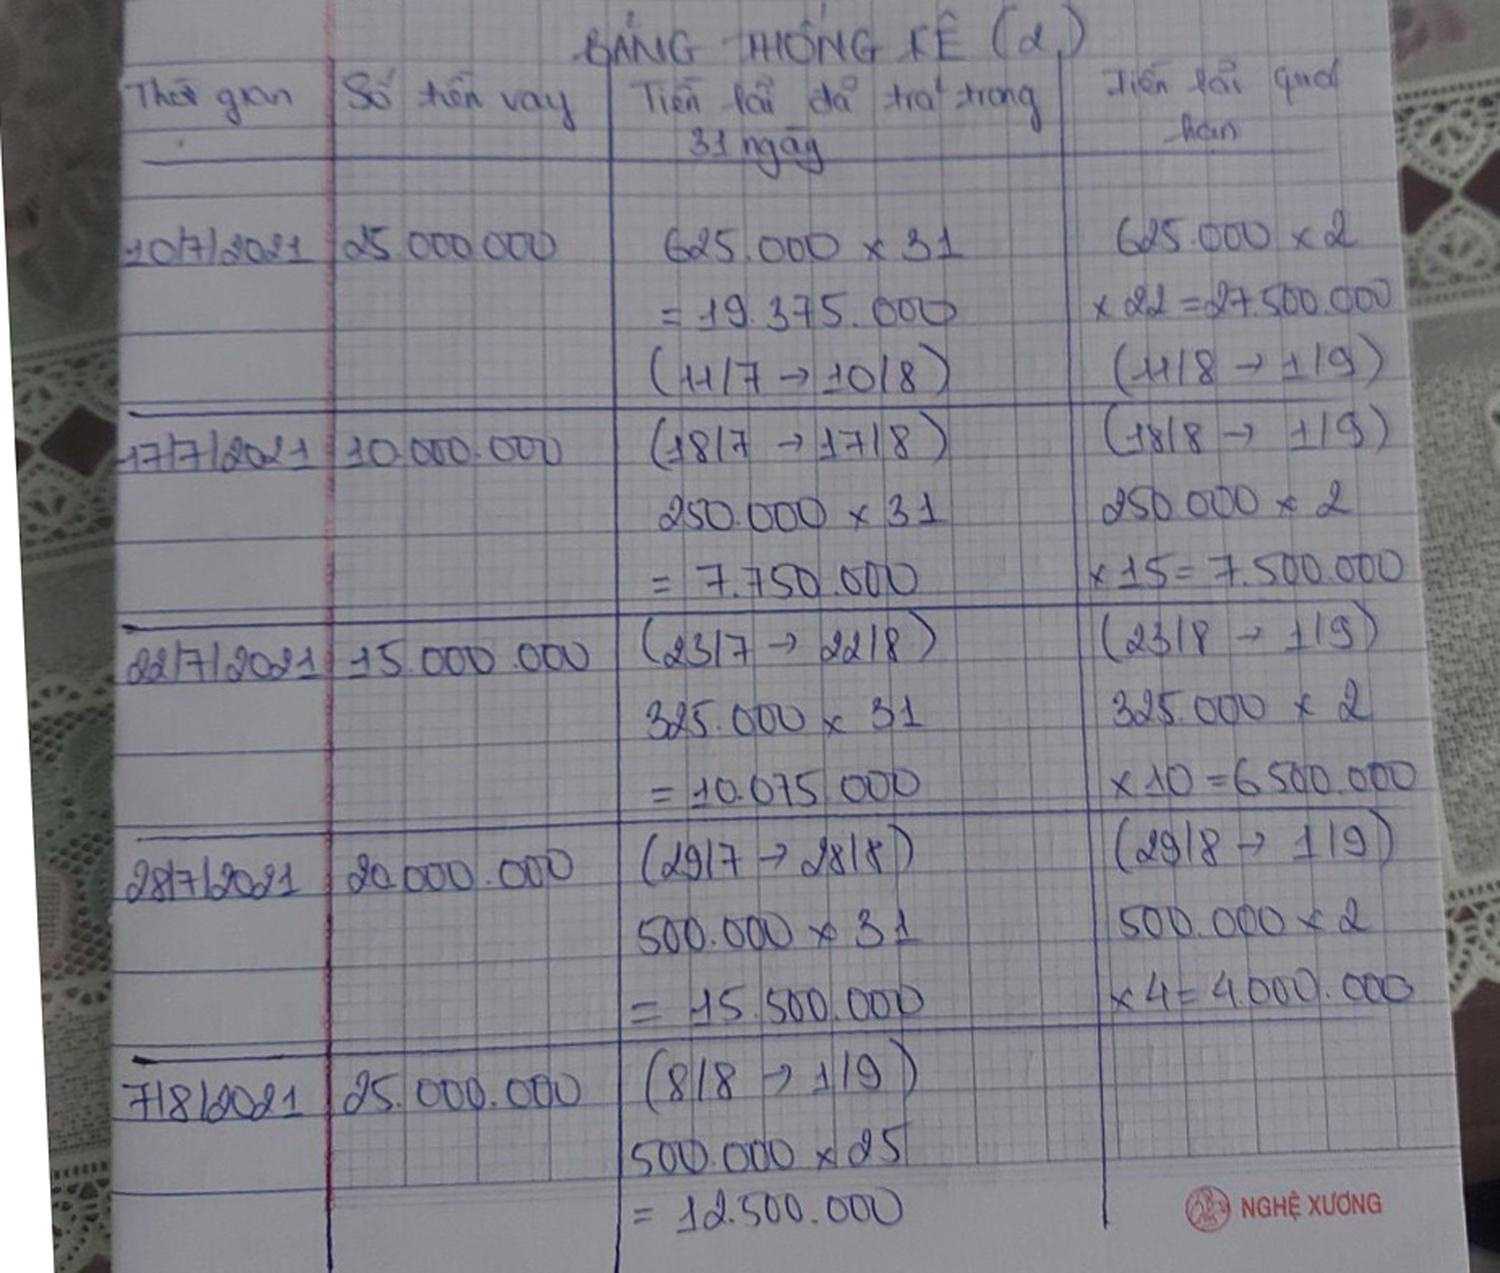 BẢNG THỐNG KÊ (2)
Thời gian Số tiền vay Tiền lãi đã trả trong Tiền lãi quá
31 ngày hạn
10/7/2021 25.000.000 625.000 x 31 625.000 x 2
= 19.375.000 x 22 = 27.500.000
(11/7 → 10/8) (11/8 → 1/9)
17/7/2021 10.000.000 (18/7 → 17/8) (18/8 → 1/9)
250.000 x 31 250.000 x 2
= 7.750.000 x 15 = 7.500.000
22/7/2021 15.000.000 (23/7 → 22/8) (23/8 → 1/9)
325.000 x 31 325.000 x 2
= 10.075.000 x 10 = 6.500.000
28/7/2021 20.000.000 (29/7 → 28/8) (29/8 → 1/9)
500.000 x 31 500.000 x 2
= 15.500.000 x 4 = 4.000.000
7/8/2021 25.000.000 (8/8 → 1/9)
500.000 x 25
= 12.500.000
NGHỆ XƯƠNG